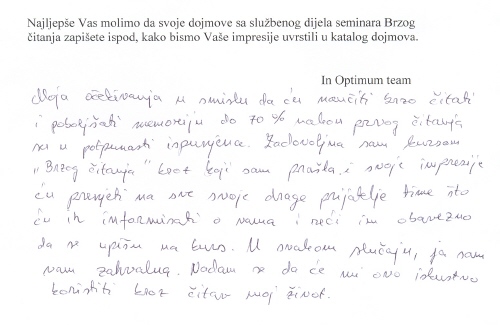 Najljepše Vas molimo da svoje dojmove sa službenog dijela seminara Brzog
čitanja zapišete ispod, kako bismo Vaše impresije uvrstili u katalog dojmova.
In Optimum team
Moja očekivanja u smislu da ću naučiti brzo čitati
i poboljšati memoriju do 70% nakon prvog čitanja
su u potpunosti ispunjena. Zadovoljna sam kursom
"Brzog čitanja" kroz koji sam prošla, i svoje impresije
ću prenjeti na sve svoje drage prijatelje time što
ću ih informisati o vama i reći im obavezno
da se upišu na kurs. U svakom slučaju, ja sam
vam zahvalna. Nadam se da će mi ovo iskustvo
koristiti kroz čitav moj život.